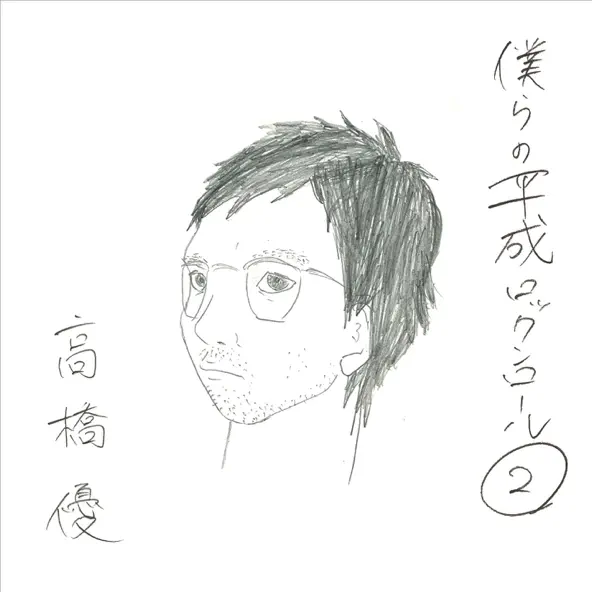 僕らの平成ロックンロール②
高橋優